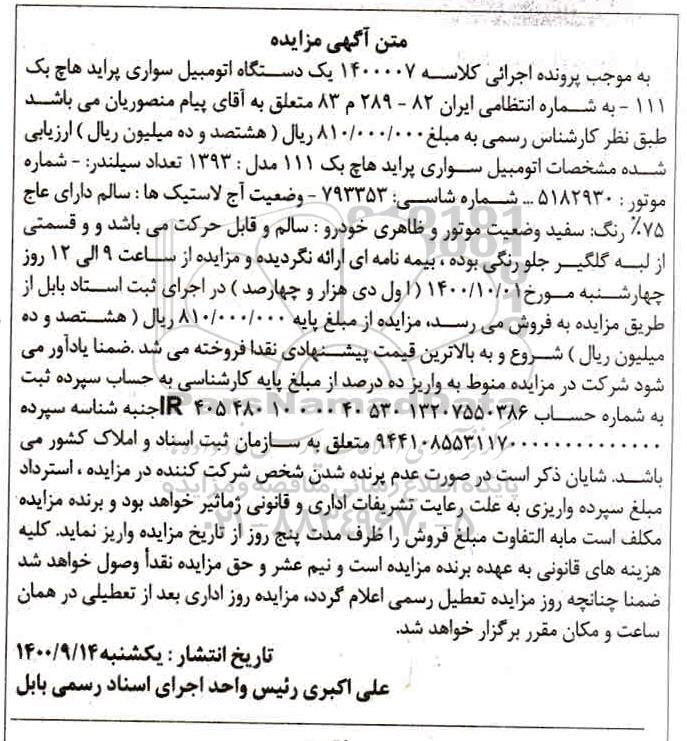 متن آگهی مزایده
به موجب پرونده اجرائی کلاسه ۱۴۰۰۰۰۷ یک دستگاه اتومبیل سواری پراید هاچ بک
۱۱۱ - به شماره انتظامی ایران ۸۲ - ۲۸۹ م ۸۳ متعلق به آقای پیام منصوریان می باشد
طبق نظر کارشناس رسمی به مبلغ ۸۱۰/۰۰۰/۰۰۰ ریال ( هشتصد و ده میلیون ریال ) ارزیابی
شده مشخصات اتومبیل سواری پراید هاچ بک ۱۱۱ مدل : ۱۳۹۳ تعداد سیلندر: - شماره
موتور : ۵۱۸۲۹۳۰ ... شماره شاسی: ۷۹۳۳۵۳ - وضعیت آج لاستیک ها : سالم دارای عاج
۷۵٪ رنگ: سفید وضعیت موتور و ظاهری خودرو : سالم و قابل حرکت می باشد و و قسمتی
از لبه گلگیر جلو رنگی بوده ، بیمه نامه ای ارائه نگردیده و مزایده از ساعت ۹ الی ۱۲ روز
چهارشنبه مورخ ۱۴۰۰/۱۰/۰۱ ( اول دی هزار و چهارصد ) در اجرای ثبت استاد بابل از
طریق مزایده به فروش می رسد، مزایده از مبلغ پایه ۸۱۰/۰۰۰/۰۰۰ ریال ( هشتصد و ده
میلیون ریال ) شروع و به بالاترین قیمت پیشنهادی نقدا فروخته می شد .ضمنا یادآور می
شود شرکت در مزایده منوط به واریز ده درصد از مبلغ پایه کارشناسی به حساب سپرده ثبت
به شماره حساب IR ۴۰۵ ۴۸۰ ۱۰ ۰۰۰ ۴۰ ۵۳۰ ۱۳۲۰۷۵۵۰۳۸۶ جنبه شناسه سپرده
متعلق به سازمان ثبت اسناد و املاک کشور می
باشد. شایان ذکر است در صورت عدم پرنده شدن شخص شرکت کننده در مزایده ، استرداد
مبلغ سپرده واریزی به علت رعایت تشریفات اداری و قانونی زماثیر خواهد بود و برنده مزایده
مکلف است مابه التفاوت مبلغ فروش را ظرف مدت پنج روز از تاریخ مزایده واریز نماید. کلیه
هزینه های قانونی به عهده برنده مزایده است و نیم عشر و حق مزایده نقداً وصول خواهد شد
ضمنا چنانچه روز مزایده تعطیل رسمی اعلام گردد، مزایده روز اداری بعد از تعطیلی در همان
ساعت و مکان مقرر برگزار خواهد شد.
تاریخ انتشار : یکشنبه ۱۴۰۰/۹/۱۴
علی اکبری رئیس واحد اجرای اسناد رسمی بابل
ParsNamadData
پایگاه اطلاع رسانی مناقصه و مزایده
۰۲۱-۸۸۳۴۹۶۷۰-۵